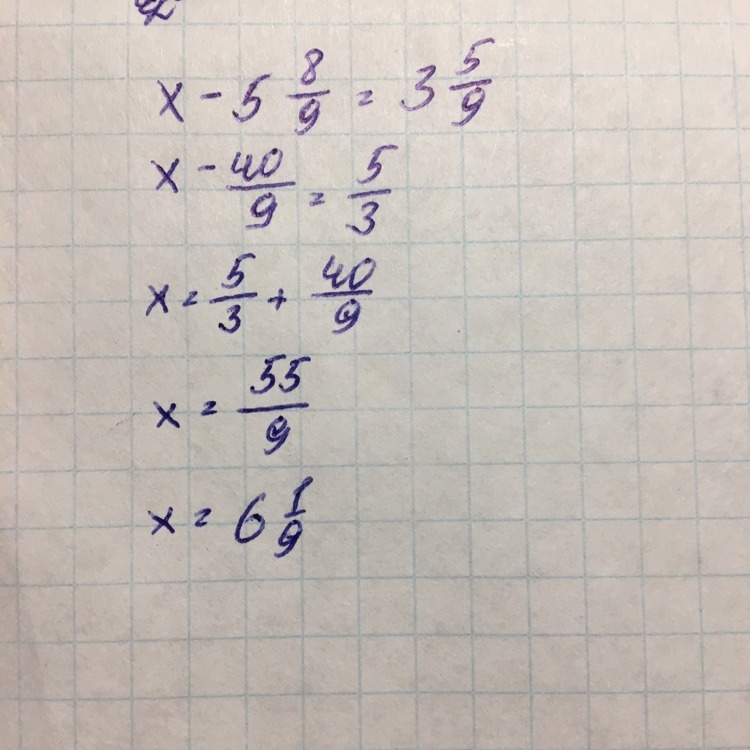 x - 5 8/9 = 3 5/9
x - 40/9 = 5/3
x = 5/3 + 40/9
x = 55/9
x = 6 1/9